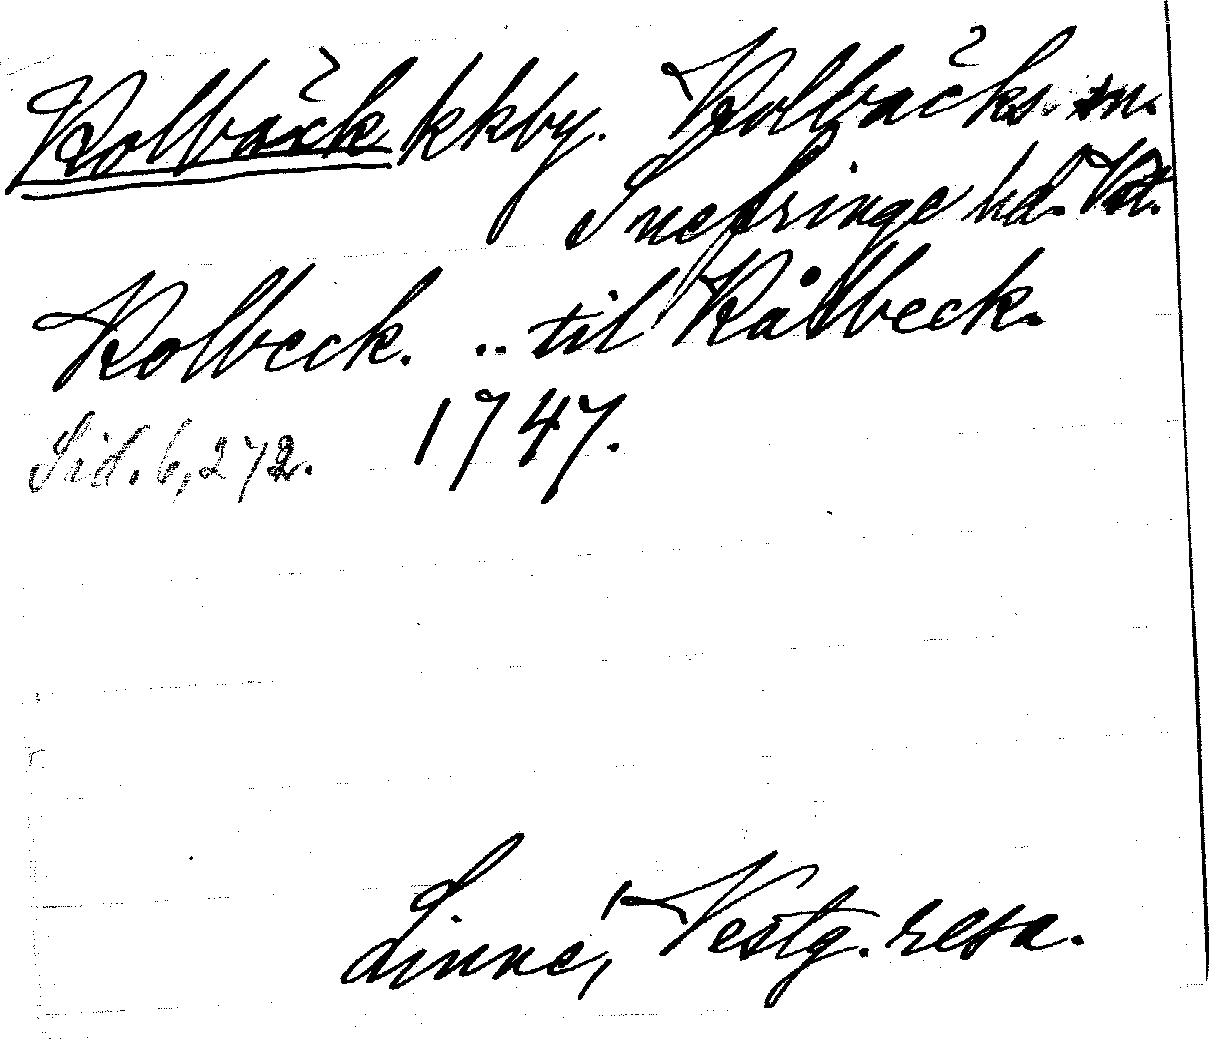 Kolbäck kkby. Kolbäcks sn.
Snefringe hd. Vstm.
Kolbeck. .. til Kålbeck.
Sid. 6, 272. 1747.
Linné, Vestg. resa.